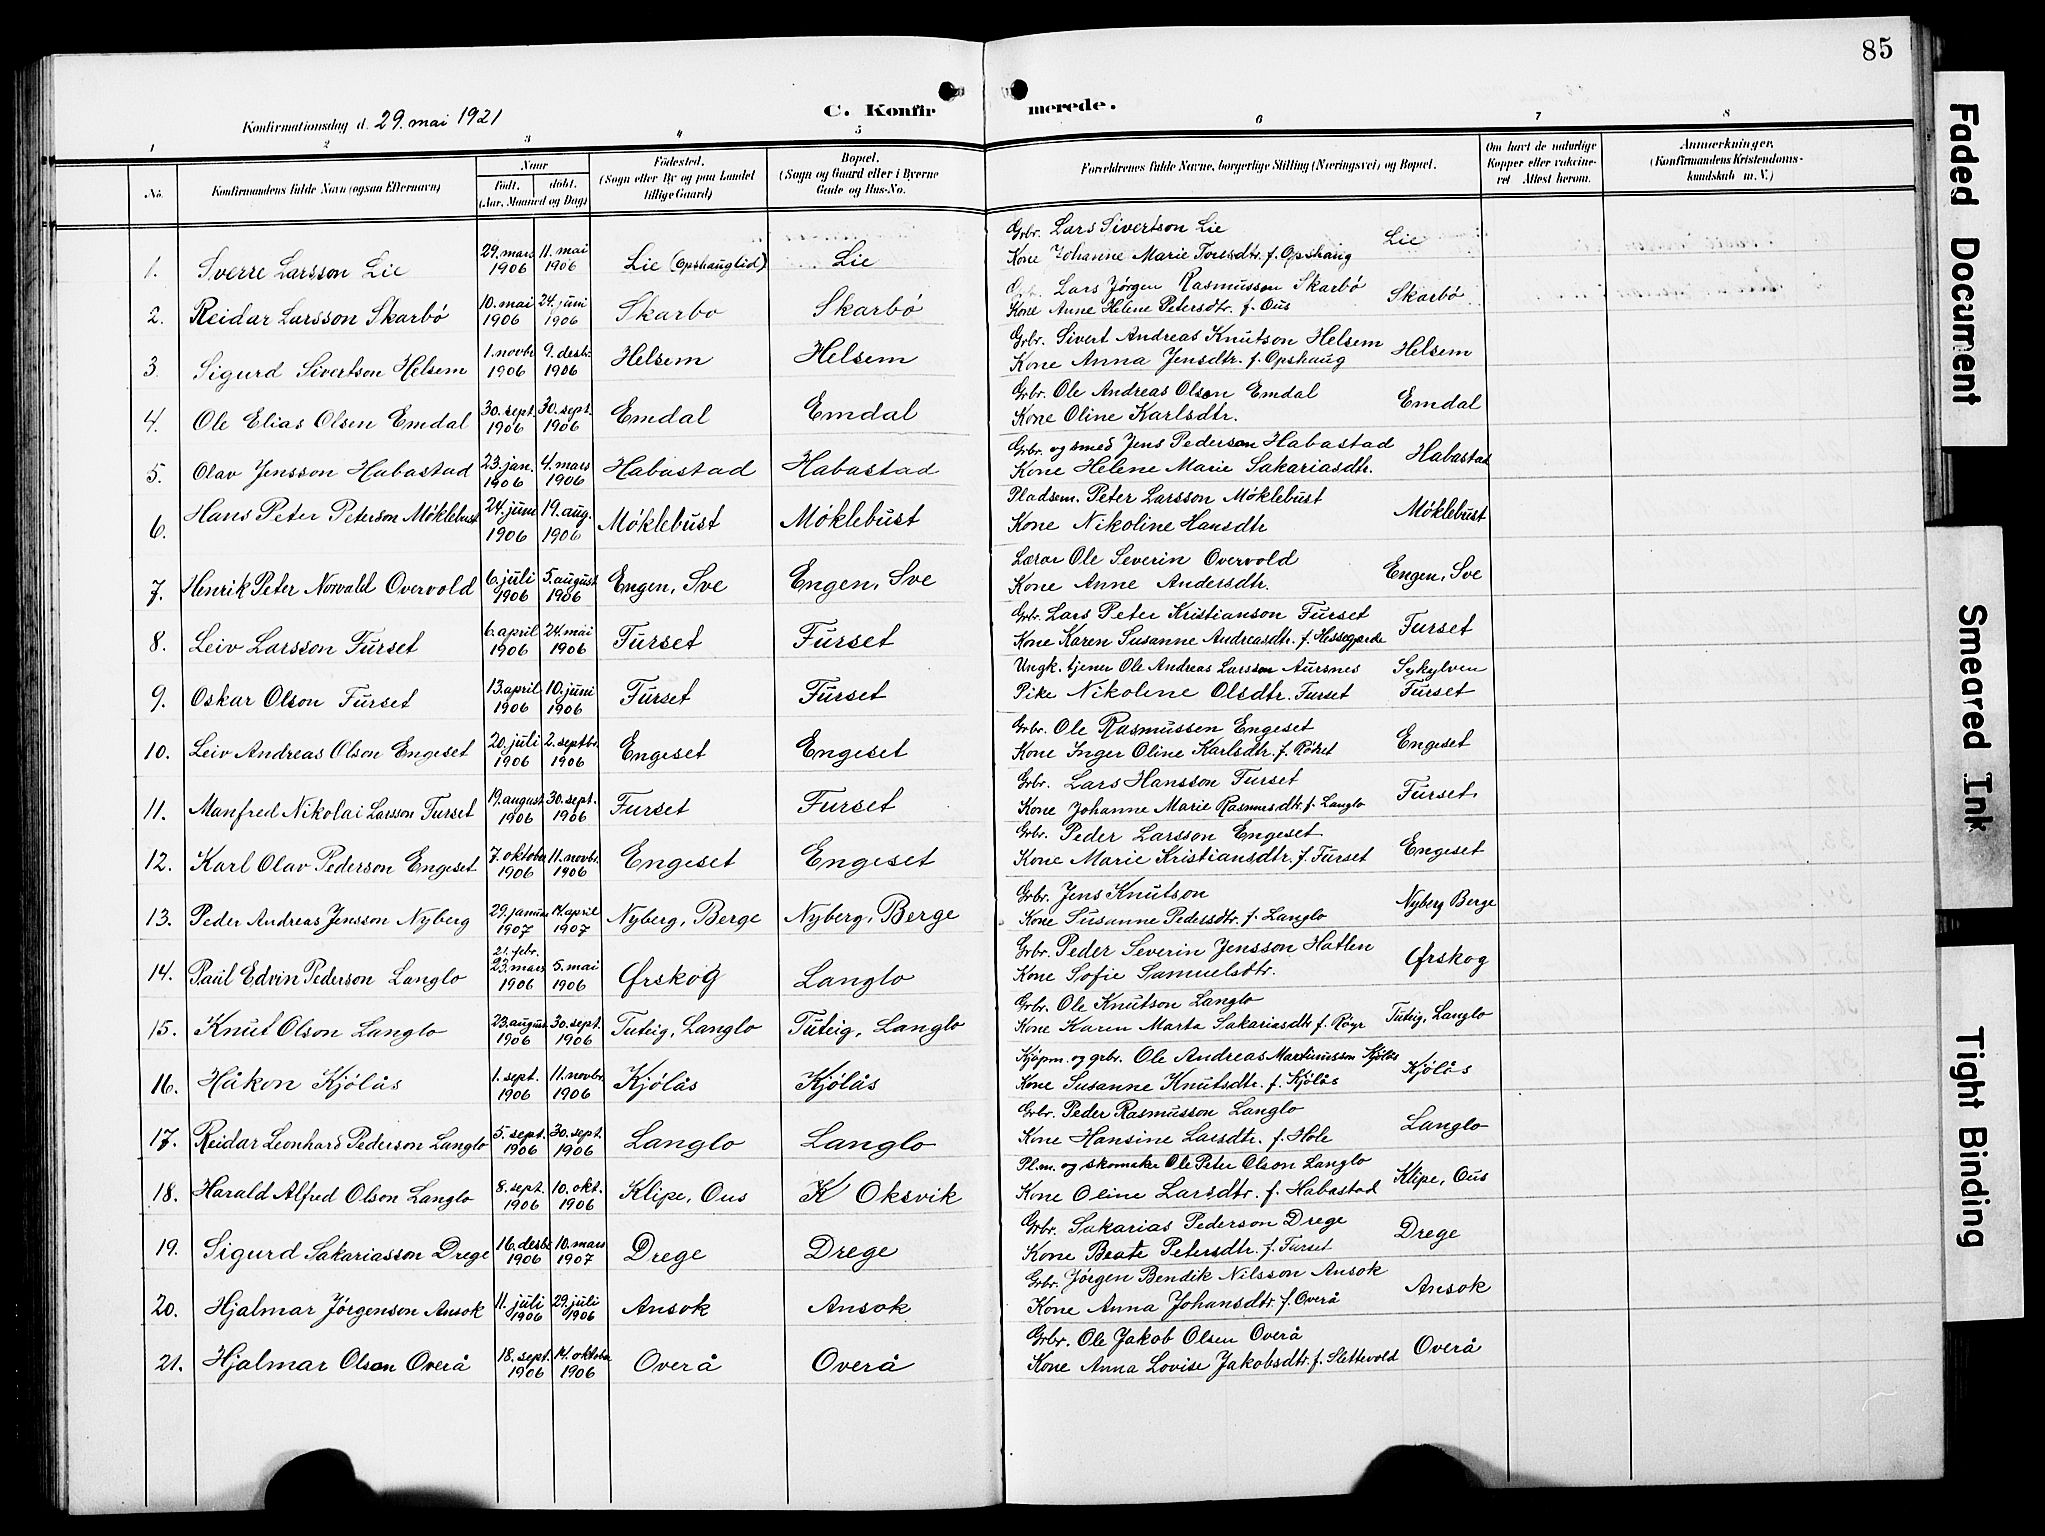 85
C. Konfirmerede.
Konfirmationsdag d. 29. mai 1921
1 2 3 4 5 6 7 8
No.
Konfirmandens fulde Navn (ogsaa Efternavn)
Naar
født. døbt.
(Aar, Maaned og Dag)
Fødested.
(Sogn eller By og paa Landet
tillige Gaard)
Bopæl.
(Sogn og Gaard eller i Byerne
Gade og Hus-No.
Forældrenes fulde Navne, borgerlige Stilling (Næringsvei) og Bopæl.
Om havt de naturlige
Kopper eller vaccine-
ret Attest herom.
Anmerkninger.
(Konfirmandens Kristendoms-
kundskab m. V.)
1. Sverre Larsson Lie 29. mars 1906 11. mai 1906 Lie (Opshauglid) Lie
Grbr. Lars Sivertson Lie
Kone Johanne Marie Toresdtr. f. Opshaug Lie
2. Reidar Larsson Skarbö 10. mai 1906 24. juni 1906 Skarbo Skarbó
Lars Jørgen Rasmusson Skarbó
Kone Anne Helene Petersdtr. f. Ous Skarbó
3. Sigurd Sivertson Helsem 1. novbr 1906 9. desbr. 1906 Helsem Helsem
Grbr. Sivert Andreas Knutson Helsem
Kone Anna Jensdtr. f. Opshaug Helsem
4. Ole Elias Olsen Emdal 30. sept. 1906 30. sept. 1906 Emdal Emdal
Grbr. Ole Andreas Olson Emdal
Kone Oline Karlsdtr. Emdal
5. Olav Jensson Habastad 23. jan. 1906 4. mars 1906 Habastad Habastad
Grbr. og smed Jens Pederson Habastad
Kone Helene Marie Sakariasdtr. Habastad
6. Hans Peter Peterson Móklebust 24. juni 1906 19. aug. 1906 Móklebust Móklebust
Pladsem. Peter Larsson Móklebust
Kone Nikoline Hansdtr Móklebust
7. Henrik Peter Norvald Overvold 6. juli 1906 5. august 1906 Engen, Sve Engen, Sve
Lærar Ole Severin Overvold
Kone Anne Andersdtr. Engen, Sve
8. Leiv Larsson Furset 6. april 1906 24. mai 1906 Furset Furset
Grbr. Lars Peter Kristianson Furset
Kone Karen Susanne Andreasdtr. f. Hessegjerde Furset
9. Oskar Olson Furset 13. april 1906 10. juni 1906 Furset Furset
Ungk. tjener Ole Andreas Larsson Aursnes Sykylven
Pike Nikoline Olsdtr. Furset Furset
10. Leiv Andreas Olson Engeset 20. juli 1906 2. septbr. 1906 Engeset Engeset
Grbr. Ole Rasmussen Engeset
Kone Inger Oline Karlsdtr. f. Róset Engeset
11. Manfred Nikolai Larsson Furset 19. august 1906 30. sept. 1906 Furset Furset
Grbr. Lars Hansson Furset
Kone Johanne Marie Rasmusdtr. f. Langlo Furset.
12. Karl Olav Pederson Engeset 7. oktober 1906 11. novbr. 1906 Engeset Engeset
Grbr. Peder Larsson Engeset
Kone Marie Kristiansdtr. f. Furset Engeset
13. Peder Andreas Jensson Nyberg 29. januar 1907 14. april 1907 Nyberg, Berge Nyberg, Berge
Grbr. Jens Knutson
Kone Susanne Pedersdtr. f. Langlo Nyberg Berge
14. Paul Edvin Pederson Langlo 21. febr. 23. mars 1906 5. mai 1906 Ørskog Langlo
Grbr. Peder Severin Jensson Hatlen
Kone Sofie Samuelsdtr. Ørskog
15. Knut Olson Langlo 23. august 1906 30. sept. 1906 Tuteig, Langlo Tuteig, Langlo
Grbr. Ole Knutson Langlo
Kone Karen Marta Sakariasdtr f. Róyr Tuteig, Langlo
16. Håkon Kjólås 1. sept. 1906 11. novbr. 1906 Kjólås Kjólås
Kjópm. og grbr. Ole Andreas Martinusson Kjólås
Kone Susanne Knutsdtr. f. Kjólås Kjólås
17. Reidar Leonhard Pederson Langlo 5. sept. 1906 30. sept. 1906 Langlo Langlo
Grbr. Peder Rasmusson Langlo
Kone Hansine Larsdtr. f. Hole Langlo
18. Harald Alfred Olson Langlo 8. sept. 1906 10. okt. 1906 Klipe, Ous K Oksvik
Pl.m. og skomaker Ole Peter Olson Langlo
Kone Oline Larsdtr. f. Habastad Klipe, Ous
19. Sigurd Sakariasson Drege 16. desbr 1906 10. mars 1907 Drege Drege
Grbr. Sakarias Pederson Drege
Kone Beate Petersdtr. f. Furset Drege
20. Hjalmar Jórgenson Ansok 11. juli 1906 29. juli 1906 Ansok Ansok
Grbr. Jórgen Bendik Nilsson Ansok
Kone Anna Johansdtr. f. Overå Ansok
21. Hjalmar Olson Overå 18. sept. 1906 14. oktober 1906 Overå Overå
Grbr. Ole Jakob Olsen Overå
Kone Anna Lovise Jakobsdtr. f. Slettevold Overå
Faded Document
Smeared Ink
Tight Binding